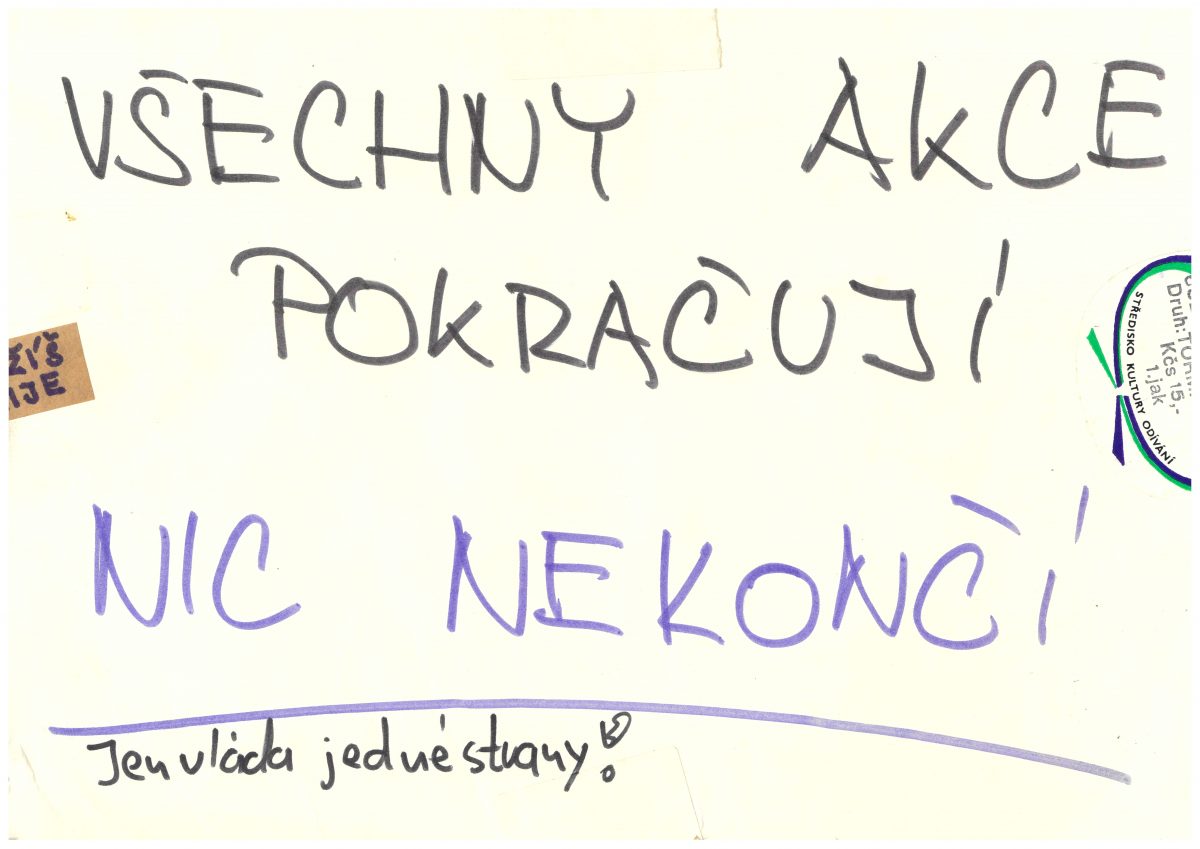 VŠECHNY AKCE
POKRAČUJÍ
Druh:
Kčs 15,-
1.jak
STŘEDISKO KULTURY ODÍVÁNÍ
NIC NEKONČÍ
Jen vláda jedné strany!